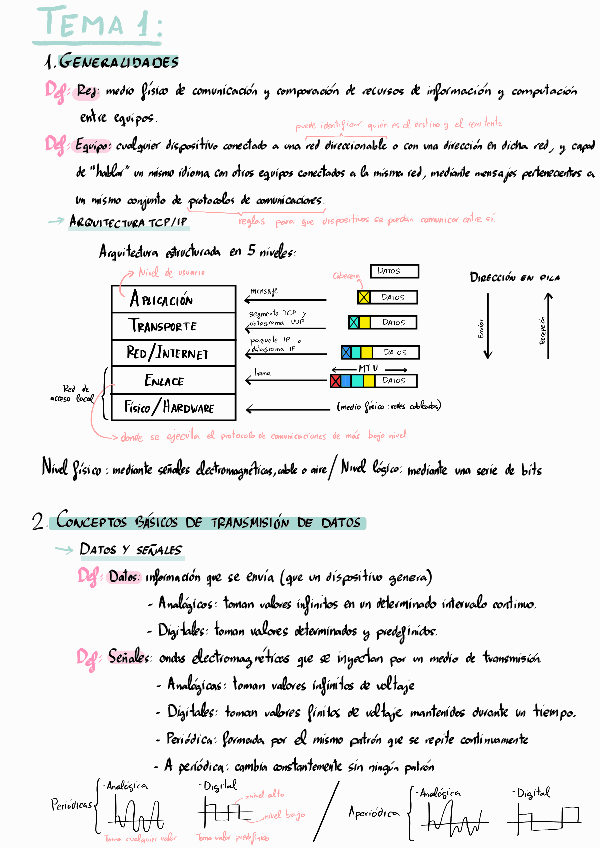 TEMA 1:
1. GENERALIDADES
Def: Red: medio físico de comunicación y comparación de recursos de información y computación
entre equipos.
puede identificar quien es el destino y el remitente
Def: Equipo: cualquier dispositivo conectado a una red direccionable o con una dirección en dicha red, y capaz
de "hablar" un mismo idioma con otros equipos conectados a la misma red, mediante mensajes pertenecientes a
un mismo conjunto de protocolos de comunicaciones.
reglas para que dispositivos se puedan comunicar entre sí.
→ ARQUITECTURA TCP/IP
Arquitectura estructurada en 5 niveles:
Nivel de usuario
Cabecera
DATOS
DIRECCIÓN EN PILA
APLICACIÓN
mensaje
DATOS
TRANSPORTE
segmento TCP y
datagrama UDP
DATOS
Enviar
Recepción
RED/INTERNET
paquete IP o
datagrama IP
DATOS
MTU
Red de
acceso local
ENLACE
trama
DATOS
FÍSICO/HARDWARE
(medio físico: redes cableadas)
donde se ejecuta el protocolo de comunicaciones de más bajo nivel
Nivel físico: mediante señales electromagnéticas, cable o aire / Nivel lógico: mediante una serie de bits
2. CONCEPTOS BÁSICOS DE TRANSMISIÓN DE DATOS
→ DATOS Y SEÑALES
Def: Datos: información que se envía (que un dispositivo genera)
- Analógicos: toman valores infinitos en un determinado intervalo continuo.
- Digitales: toman valores determinados y predefinidos.
Def: Señales: ondas electromagnéticas que se inyectan por un medio de transmisión
- Analógicas: toman valores infinitos de voltaje
- Digitales: toman valores finitos de voltaje mantenidos durante un tiempo.
- Periódica: formada por el mismo patrón que se repite continuamente
- A periódica: cambia constantemente sin ningún patrón
Periódicas
- Analógica
Toma cualquier valor
- Digital
nivel alto
nivel bajo
Toma valor predefinido
Aperiódica
- Analógica
- Digital